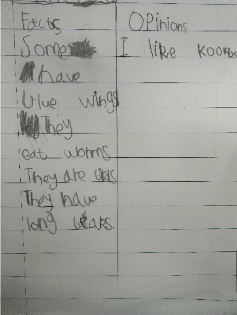 Facts
Opinions
Some
I like
have
blue wings
They
eat worms
They are
They have
long